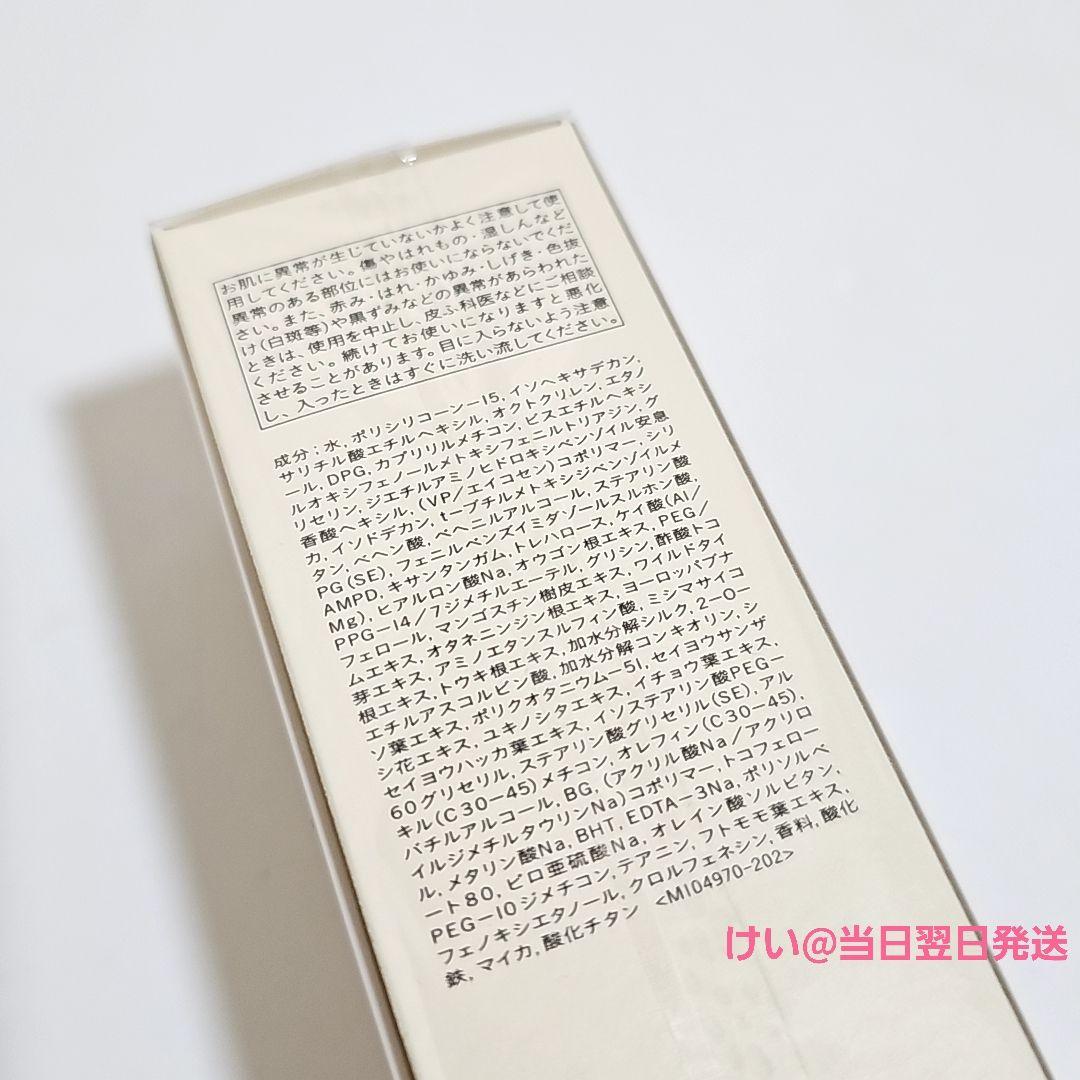 お肌に異常が生じていないかよく注意して使
用してください。傷やはれもの・湿しんなど
異常のある部位にはお使いにならないでくだ
さい。また、赤み・はれ・かゆみ・しげき・色抜
け(白斑等)や黒ずみなどの異常があらわれた
ときは、使用を中止し、皮ふ科医などにご相談
ください。続けてお使いになりますと悪化
させることがあります。目に入らないよう注意
し、入ったときはすぐに洗い流してください。
成分:水, ポリシリコーン-15, イソヘキサデカン,
サリチル酸エチルヘキシル, オクトクリレン, エタノ
ール, DPG, カプリリルメチコン, ビスエチルヘキシ
ルオキシフェノールメトキシフェニルトリアジン, グ
リセリン, ジエチルアミノヒドロキシベンゾイル安息
香酸ヘキシル, (VP/エイコセン)コポリマー, シリ
カ, イソドデカン, t-ブチルメトキシジベンゾイルメ
タン, ベヘン酸, ベヘニルアルコール, ステアリン酸
PG(SE), フェニルベンズイミダゾールスルホン酸,
AMPD, キサンタンガム, トレハロース, ケイ酸(Al/
Mg), ヒアルロン酸Na, オウゴン根エキス, PEG/
PPG-14/7ジメチルエーテル, グリシン, 酢酸トコ
フェロール, マンゴスチン樹皮エキス, ワイルドタイ
ムエキス, オタネニンジン根エキス, ヨーロッパブナ
芽エキス, アミノエタンスルフィン酸, ミシマサイコ
根エキス, トウキ根エキス, 加水分解シルク, 2-O-
エチルアスコルビン酸, 加水分解コンキオリン, シ
ソ葉エキス, ポリクオタニウム-51, セイヨウサンザ
シ花エキス, ユキノシタエキス, イチョウ葉エキス,
セイヨウハッカ葉エキス, イソステアリン酸PEG-
60グリセリル, ステアリン酸グリセリル(SE), アル
キル(C30-45)メチコン, オレフィン(C30-45),
バチルアルコール, BG, (アクリル酸Na/アクリロ
イルジメチルタウリンNa)コポリマー, トコフェロー
ル, メタリン酸Na, BHT, EDTA-3Na, ポリソルベ
ート80, ピロ亜硫酸Na, オレイン酸ソルビタン,
PEG-10ジメチコン, テアニン, フトモモ葉エキス,
フェノキシエタノール, クロルフェネシン, 香料, 酸化
鉄, マイカ, 酸化チタン <MI04970-202>
けい@当日翌日発送